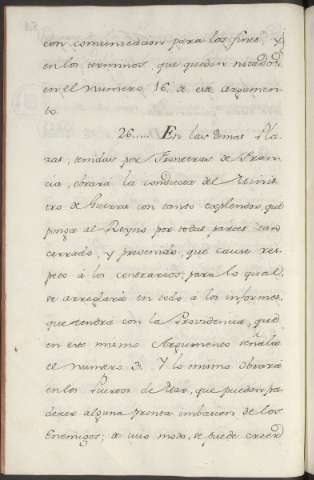 con comunicacion para los fines, y
en los terminos que quedan notados
en el numero 16 de este argumen-
to.
26..... En las demas Pla-
zas, tenidas por Fronteras de Fran-
cia, obrará la conducta del Minis-
tro de Guerra con tanto esplendor, que
ponga al Reyno por todas partes tan
cerrado, y prevenido, que cause res-
peto á los contrarios; para lo qual,
se arreglará en todo á los informes,
que tendrá con la Providencia, que
en este mismo Argumento señala
el numero 3. Y lo mismo obrará
en los Puertos de Mar, que puedan pa-
decer alguna pronta imbacion de los
Enemigos; de cuio modo, se puede creer